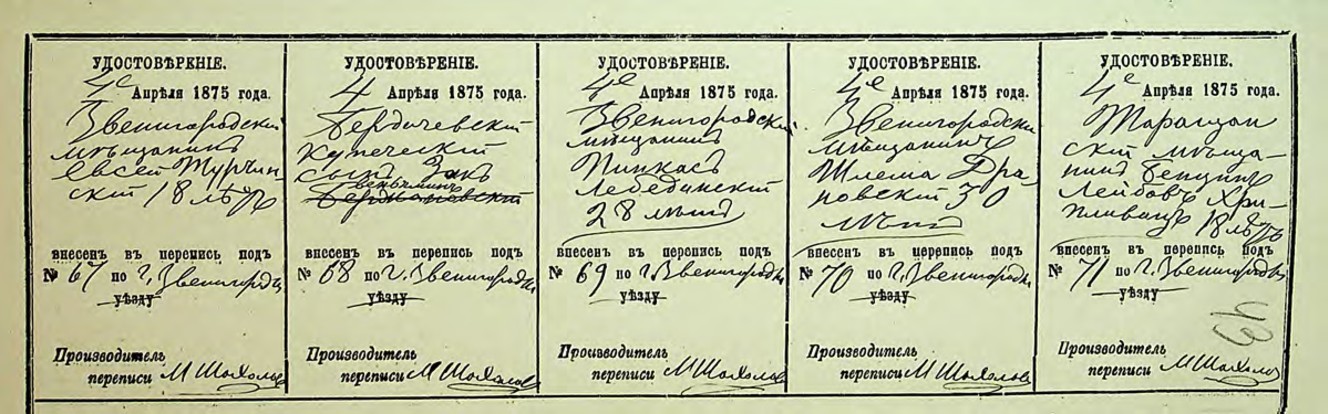 УДОСТОВѢРЕНІЕ.
4е Апрѣля 1875 года.
Звенигородскій
мѣщанинъ
Евсей Турчин-
скій 18 лѣтъ
внесенъ въ перепись подъ
№ 67 по г. Звенигородкѣ
уѣзду
Производитель
переписи М Шохалов
УДОСТОВѢРЕНІЕ.
4 Апрѣля 1875 года.
Бердичевскій
купеческій
сынъ Закъ
Веньяминъ
внесенъ въ перепись подъ
№ 68 по г. Звенигородкѣ
уѣзду
Производитель
переписи М Шохалов
УДОСТОВѢРЕНІЕ.
4е Апрѣля 1875 года.
Звенигородскій
мѣщанинъ
Пинкасъ
Лебединскій
28 лѣтъ
внесенъ въ перепись подъ
№ 69 по г. Звенигородкѣ
уѣзду
Производитель
переписи М Шохалов
УДОСТОВѢРЕНІЕ.
4е Апрѣля 1875 года.
Звенигородскій
мѣщанинъ
Шлема Дра-
новскій 30
лѣтъ
внесенъ въ перепись подъ
№ 70 по г. Звенигородкѣ
уѣзду
Производитель
переписи М Шохалов
УДОСТОВѢРЕНІЕ.
4е Апрѣля 1875 года.
Таращан
скій мѣща-
нинъ Бенціонъ
Лейбовъ Хри-
пливецъ 18 лѣтъ
внесенъ въ перепись подъ
№ 71 по г. Звенигородкѣ
уѣзду
Производитель
переписи М Шохалов